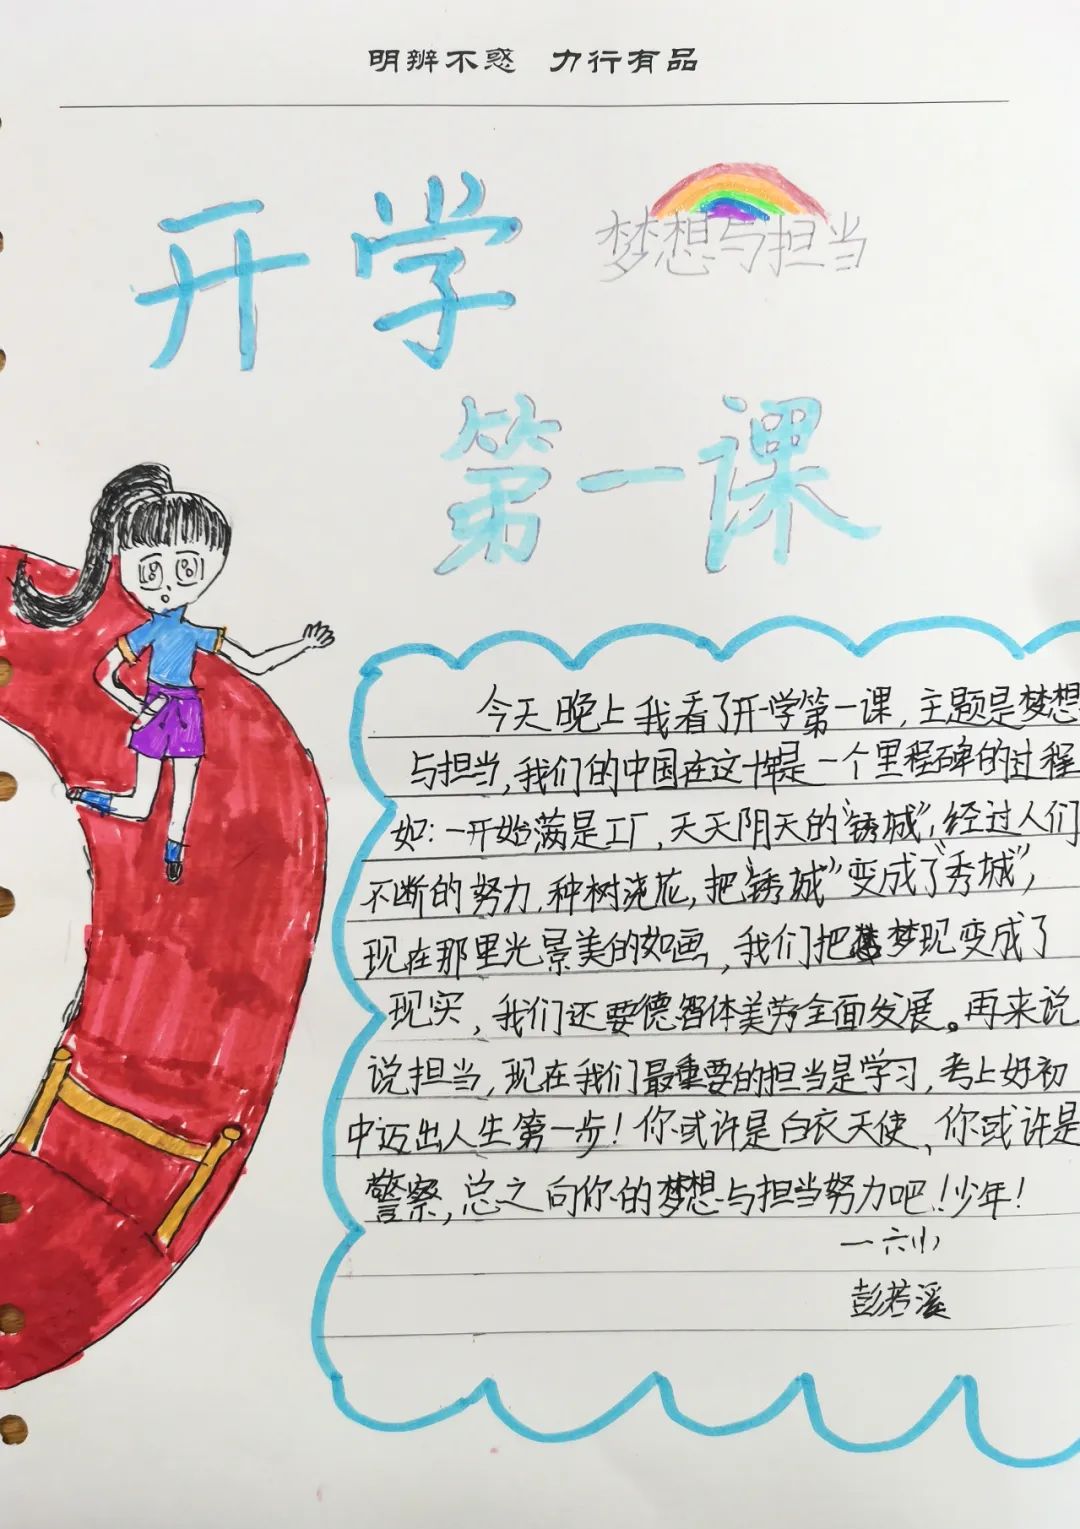 明辨不惑 力行有品
开学
梦想与担当
第一课
今天晚上我看了开学第一课，主题是梦想
与担当，我们的中国在这十年是一个里程碑的过程
如：一开始满是工厂，天天阴天的“锈城”，经过人们
不断的努力，种树浇花，把“锈城”变成了“秀城”，
现在那里光景美的如画，我们把梦现变成了
现实，我们还要德智体美劳全面发展。再来说
说担当，现在我们最重要的担当是学习，考上好初
中迈出人生第一步！你或许是白衣天使、你或许是
警察，总之向你的梦想与担当努力吧！少年！
一六小
彭若溪